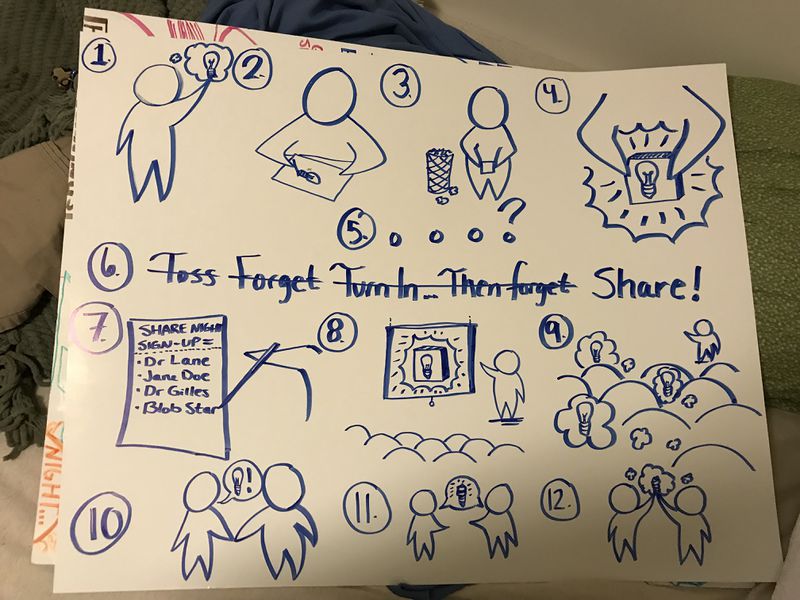 1.
2.
3.
4.
5. ?
6. Toss Forget Turn In... Then forget Share!
7.
SHARE NIGHT
SIGN-UP =
• Dr Lane
• Jane Doe
• Dr Gilles
• Blob Star
8.
9.
!
10
11.
12.
NIGHT...